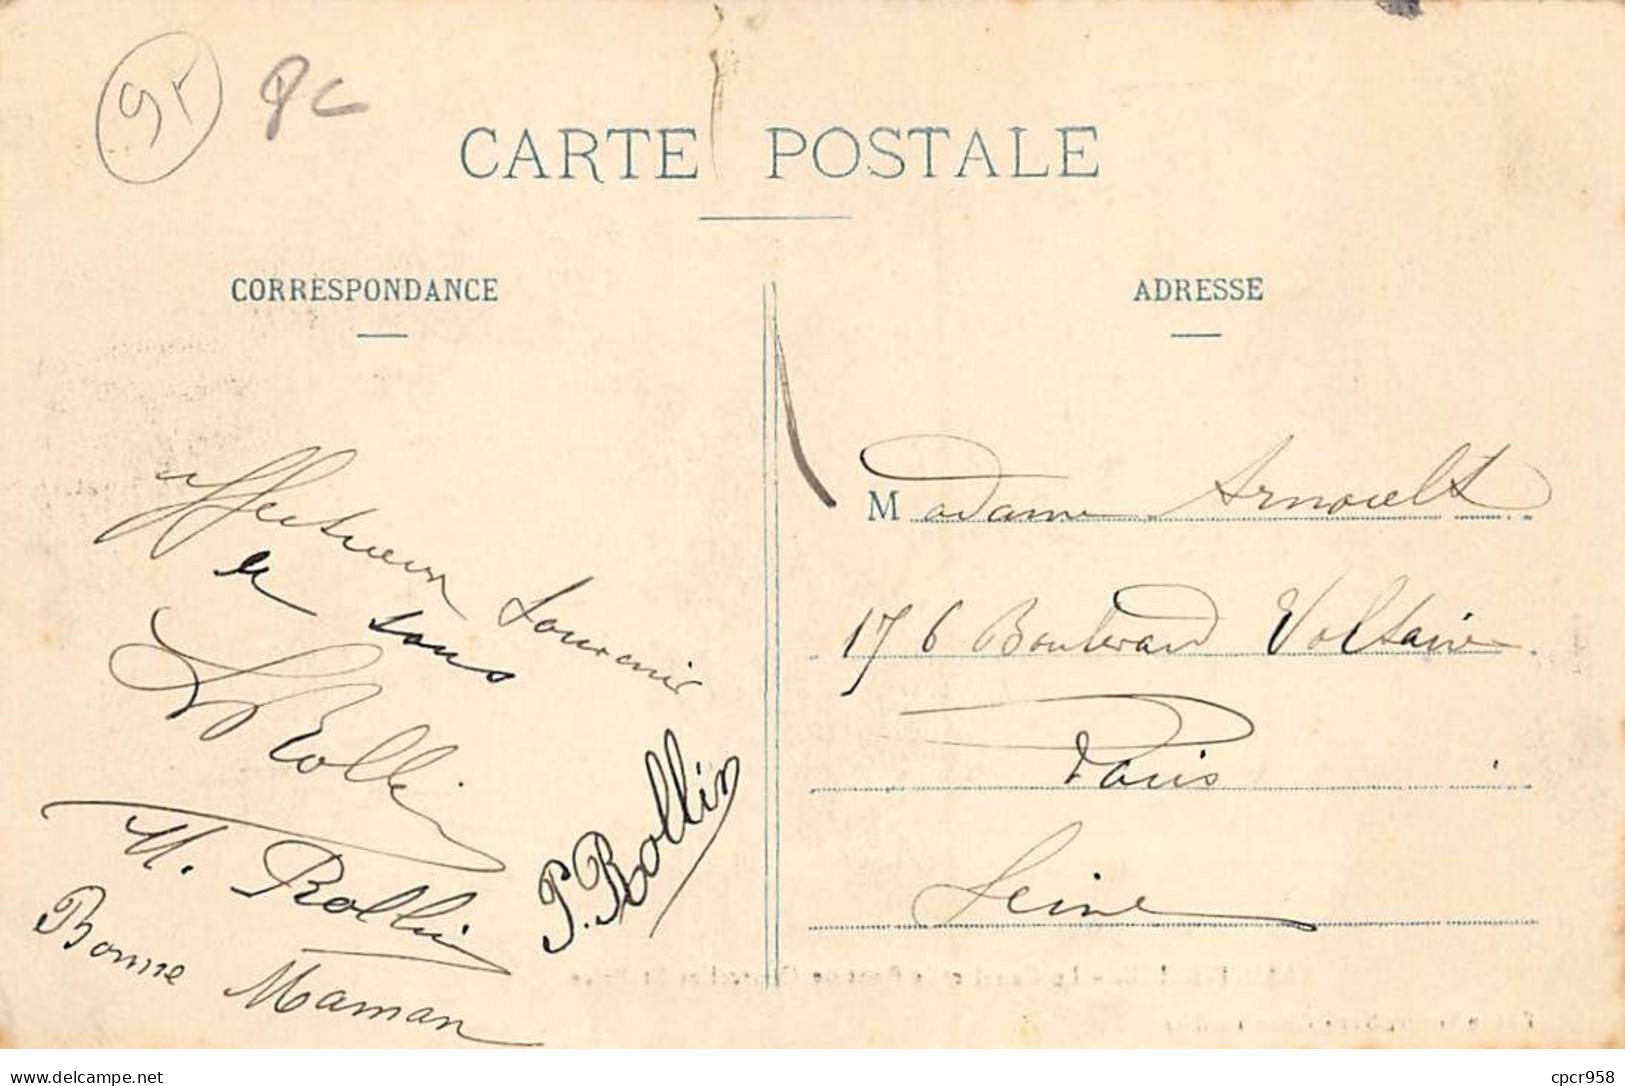 CARTE POSTALE
CORRESPONDANCE
affectueux souvenir
de tous
Rollin
M. Rollin
P. Rollin
Bonne Maman
ADRESSE
Madame Arnoult
176 Boulevard Voltaire
Paris
Seine
www.delcampe.net
cpcr958